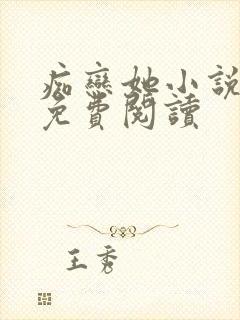 痴戀她小說
免費閱讀
王秀